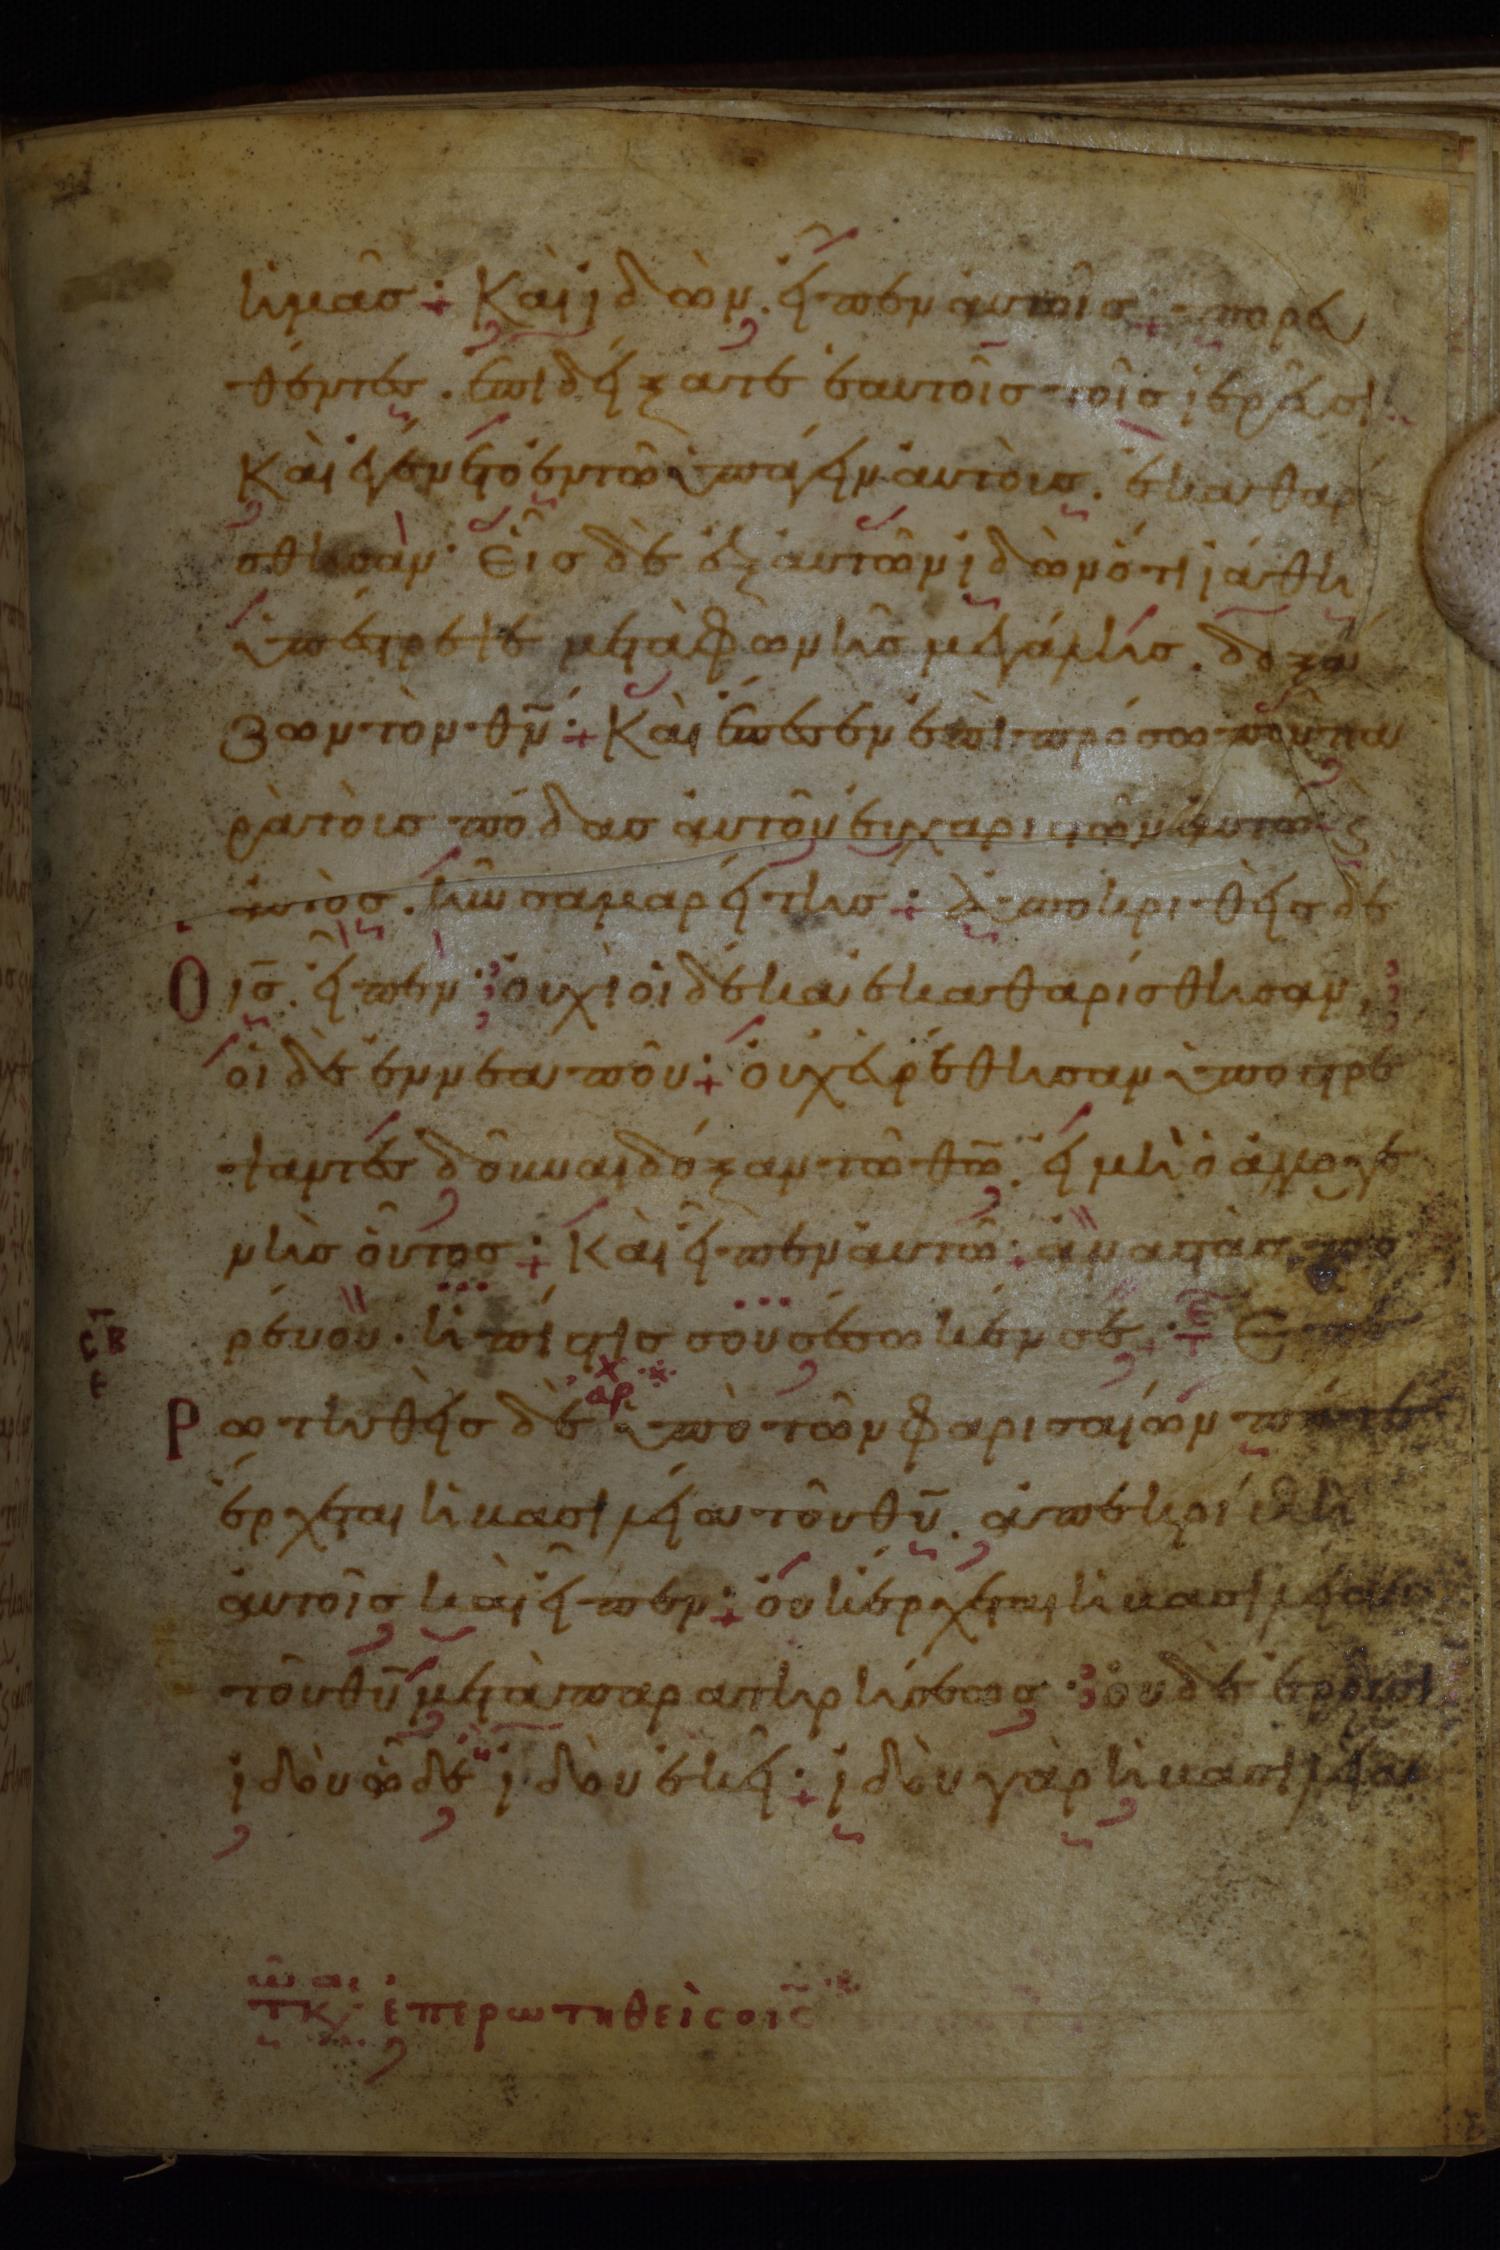 ἡμᾶσ· Καὶ ἰδὼν. εἶπεν αὐτοῖσ· πορευ
θέντεσ. ἐπιδείξατε ἑαυτοῖσ τοῖσ ἱερεῦσι
Καὶ ἐγένετο ἐν τῶ ὑπάγειν αὐτοὺσ. ἐκαθαρί
σθησαν· Εἷσ δὲ ἐξ αὐτῶν ἰδὼν ὅτι ἰάθη
ὑπέστρεψε μετὰ φωνῆσ μεγάλησ. δοξά
ζων τὸν θν̄· Καὶ ἔπεσεν ἐπὶ πρόσωπον πα
ρὰ τοὺσ πόδασ αὐτοῦ εὐχαριστῶν αὐτῶ ϛ
αὐτὸσ. ἦν σαμαρείτησ· ἀποκριθεὶσ δὲ
Ὁ ισ̄. εἶπεν· οὐχὶ οἱ δέκα ἐκαθαρίσθησαν,
οἱ δὲ ἐννέα ποῦ· οὐχ εὑρέθησαν ὑποστρέ
ψαντεσ δοῦναι δόξαν τῶ θω̄. εἰ μὴ ὁ ἀλλογε
νὴσ οὗτοσ· Καὶ εἶπεν αὐτῶ· ἀναστὰσ πο
ρεύου. ἡ πίστισ σου σέσωκέν σε· Ἐπε
Ρωτηθεὶσ δὲ ὑπὸ τῶν φαρισαίων πότε
ἔρχεται ἡ βασιλεία τοῦ θῡ. ἀπεκρίθη
αὐτοῖσ καὶ εἶπεν· οὐκ ἔρχεται ἡ βασιλεία
τοῦ θῡ μετὰ παρατηρήσεωσ· οὐδὲ ἐροῦσι
ἰδοὺ ὧδε ἢ ἰδοὺ ἐκεῖ· ἰδοὺ γὰρ ἡ βασιλεία
τ κ ἐπερωτηθεὶς ὁ ις̄